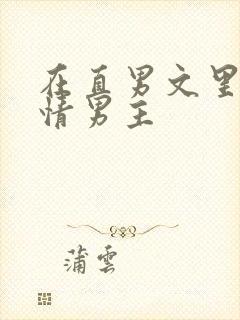 在直男文里
情男主
蒲雲